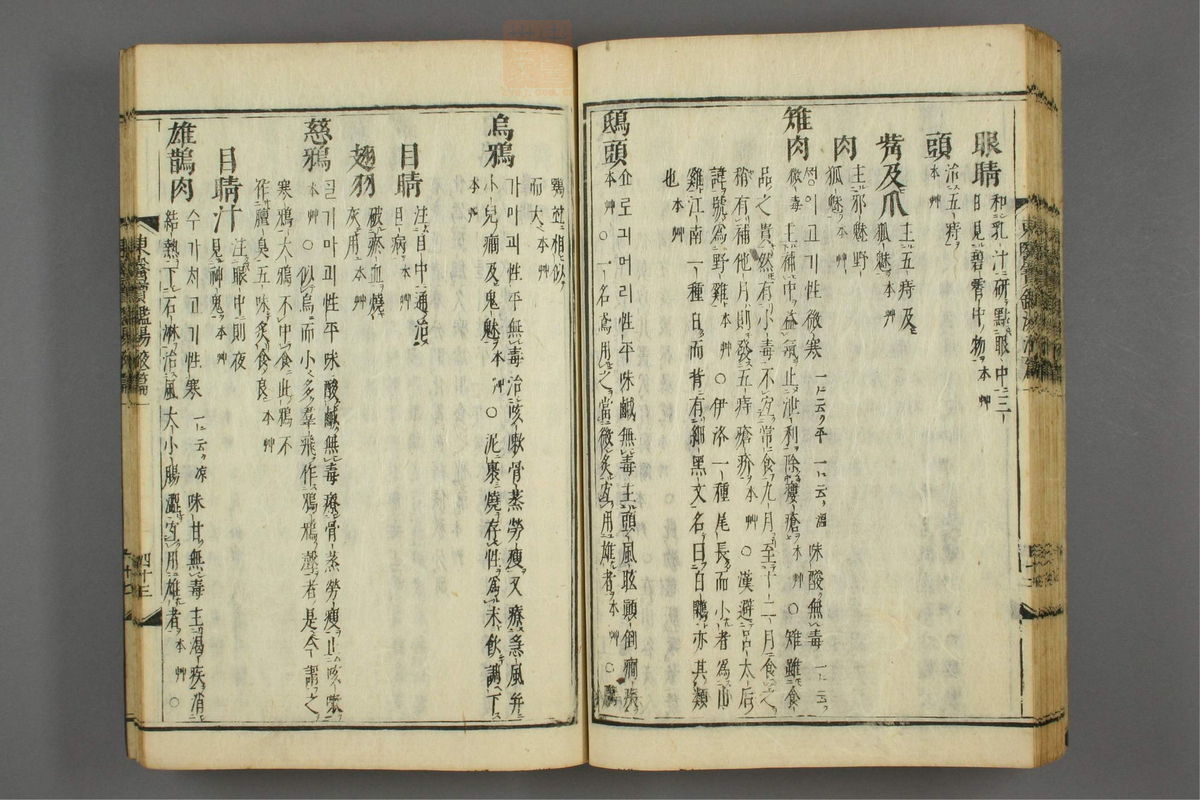 眼睛 和乳汁硏點眼中三
日見碧霄中物 本艸
頭 治五痔
本艸
觜及爪 主五痔及
狐魅 本艸
肉 主邪魅野
狐魅 本艸
雉肉 ᄉᆡᆼ의고기 性微寒 一云平 一云溫 味酸無毒 一云
微毒 主補中益氣止泄利除瘻瘡 本艸 ○雉雖食
品之貴然有小毒不宜常食九月至十二月食之
稍有補他月則發五痔瘡疥 本艸 ○漢避呂太后
諱號爲野雞 本艸 ○伊洛一種尾長而小者爲山
雞江南一種白而背有細黑文名曰白鷴亦其類
也 本艸
鴟頭 쇼로긔머리 性平味鹹無毒主頭風眩顚倒癎疾
本艸 ○一名鳶用之當微炙宜用雄者 本艸 ○
鷄並相似
而大 本艸
烏鴉 가마괴 性平無毒治咳嗽骨蒸勞瘦又療急風幷
小兒癎及鬼魅 本艸 ○泥裹燒存性爲末飮調下
本艸
目睛 注目中通治
目病 本艸
翅羽 破瘀血燒
灰用 本艸
慈鴉 ᄀᆞᆯ가마괴 性平味酸鹹無毒療骨蒸勞瘦止咳嗽
本艸 ○似烏而小多羣飛作鴉鴉聲者是今謂之
寒鴉大鴉不中食此鴉不
作膻臭五味炙食良 本艸
目睛汁 注眼中則夜
見神鬼 本艸
雄鵲肉 수가치고기 性寒 一云凉 味甘無毒主渴疾消
結熱下石淋治風大小腸澁宜用雄者 本艸 ○
東醫寶鑑湯液篇
四十三